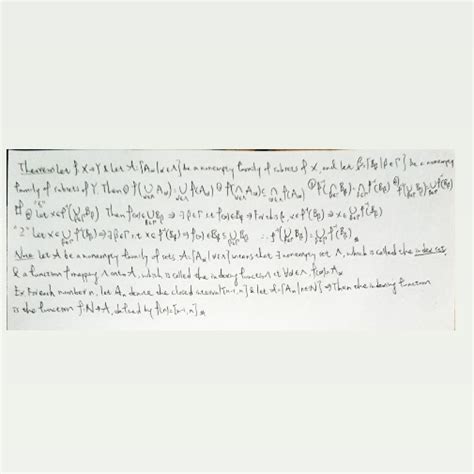 Theorem Let f: X→Y & Let A={Aα|α∈Λ} be a nonempty family of subsets of X, and let B={Bβ|β∈Γ} be a nonempty
family of subsets of Y. Then ① f(∪Aα)=∪f(Aα) ② f(∩Aα)⊆∩f(Aα) ③ f⁻¹(∩Bβ)=∩f⁻¹(Bβ) ④ f⁻¹(∪Bβ)=∪f⁻¹(Bβ)
Pf ④ "⊆" Let x∈f⁻¹(∪Bβ) Then f(x)∈∪Bβ ⇒ ∃β∈Γ s.t. f(x)∈Bβ ⇒ x∈f⁻¹(Bβ) ⇒ x∈∪f⁻¹(Bβ)
"⊇" Let x∈∪f⁻¹(Bβ) ⇒ ∃β∈Γ s.t. x∈f⁻¹(Bβ) ⇒ f(x)∈Bβ⊆∪Bβ ∴ f⁻¹(∪Bβ)=∪f⁻¹(Bβ)
Note Let A be a nonempty family of sets A={Aα|α∈Λ} means that ∃ nonempty set Λ, which is called the index set,
& a function f mapping Λ onto A, which is called the indexing function s.t. ∀α∈Λ, f(α)=Aα
Ex For each number n, let An denote the closed interval [n-1,n] & let A={An|n∈N} ⇒ Then the indexing function
is the function f:N→A, defined by f(n)=[n-1,n]